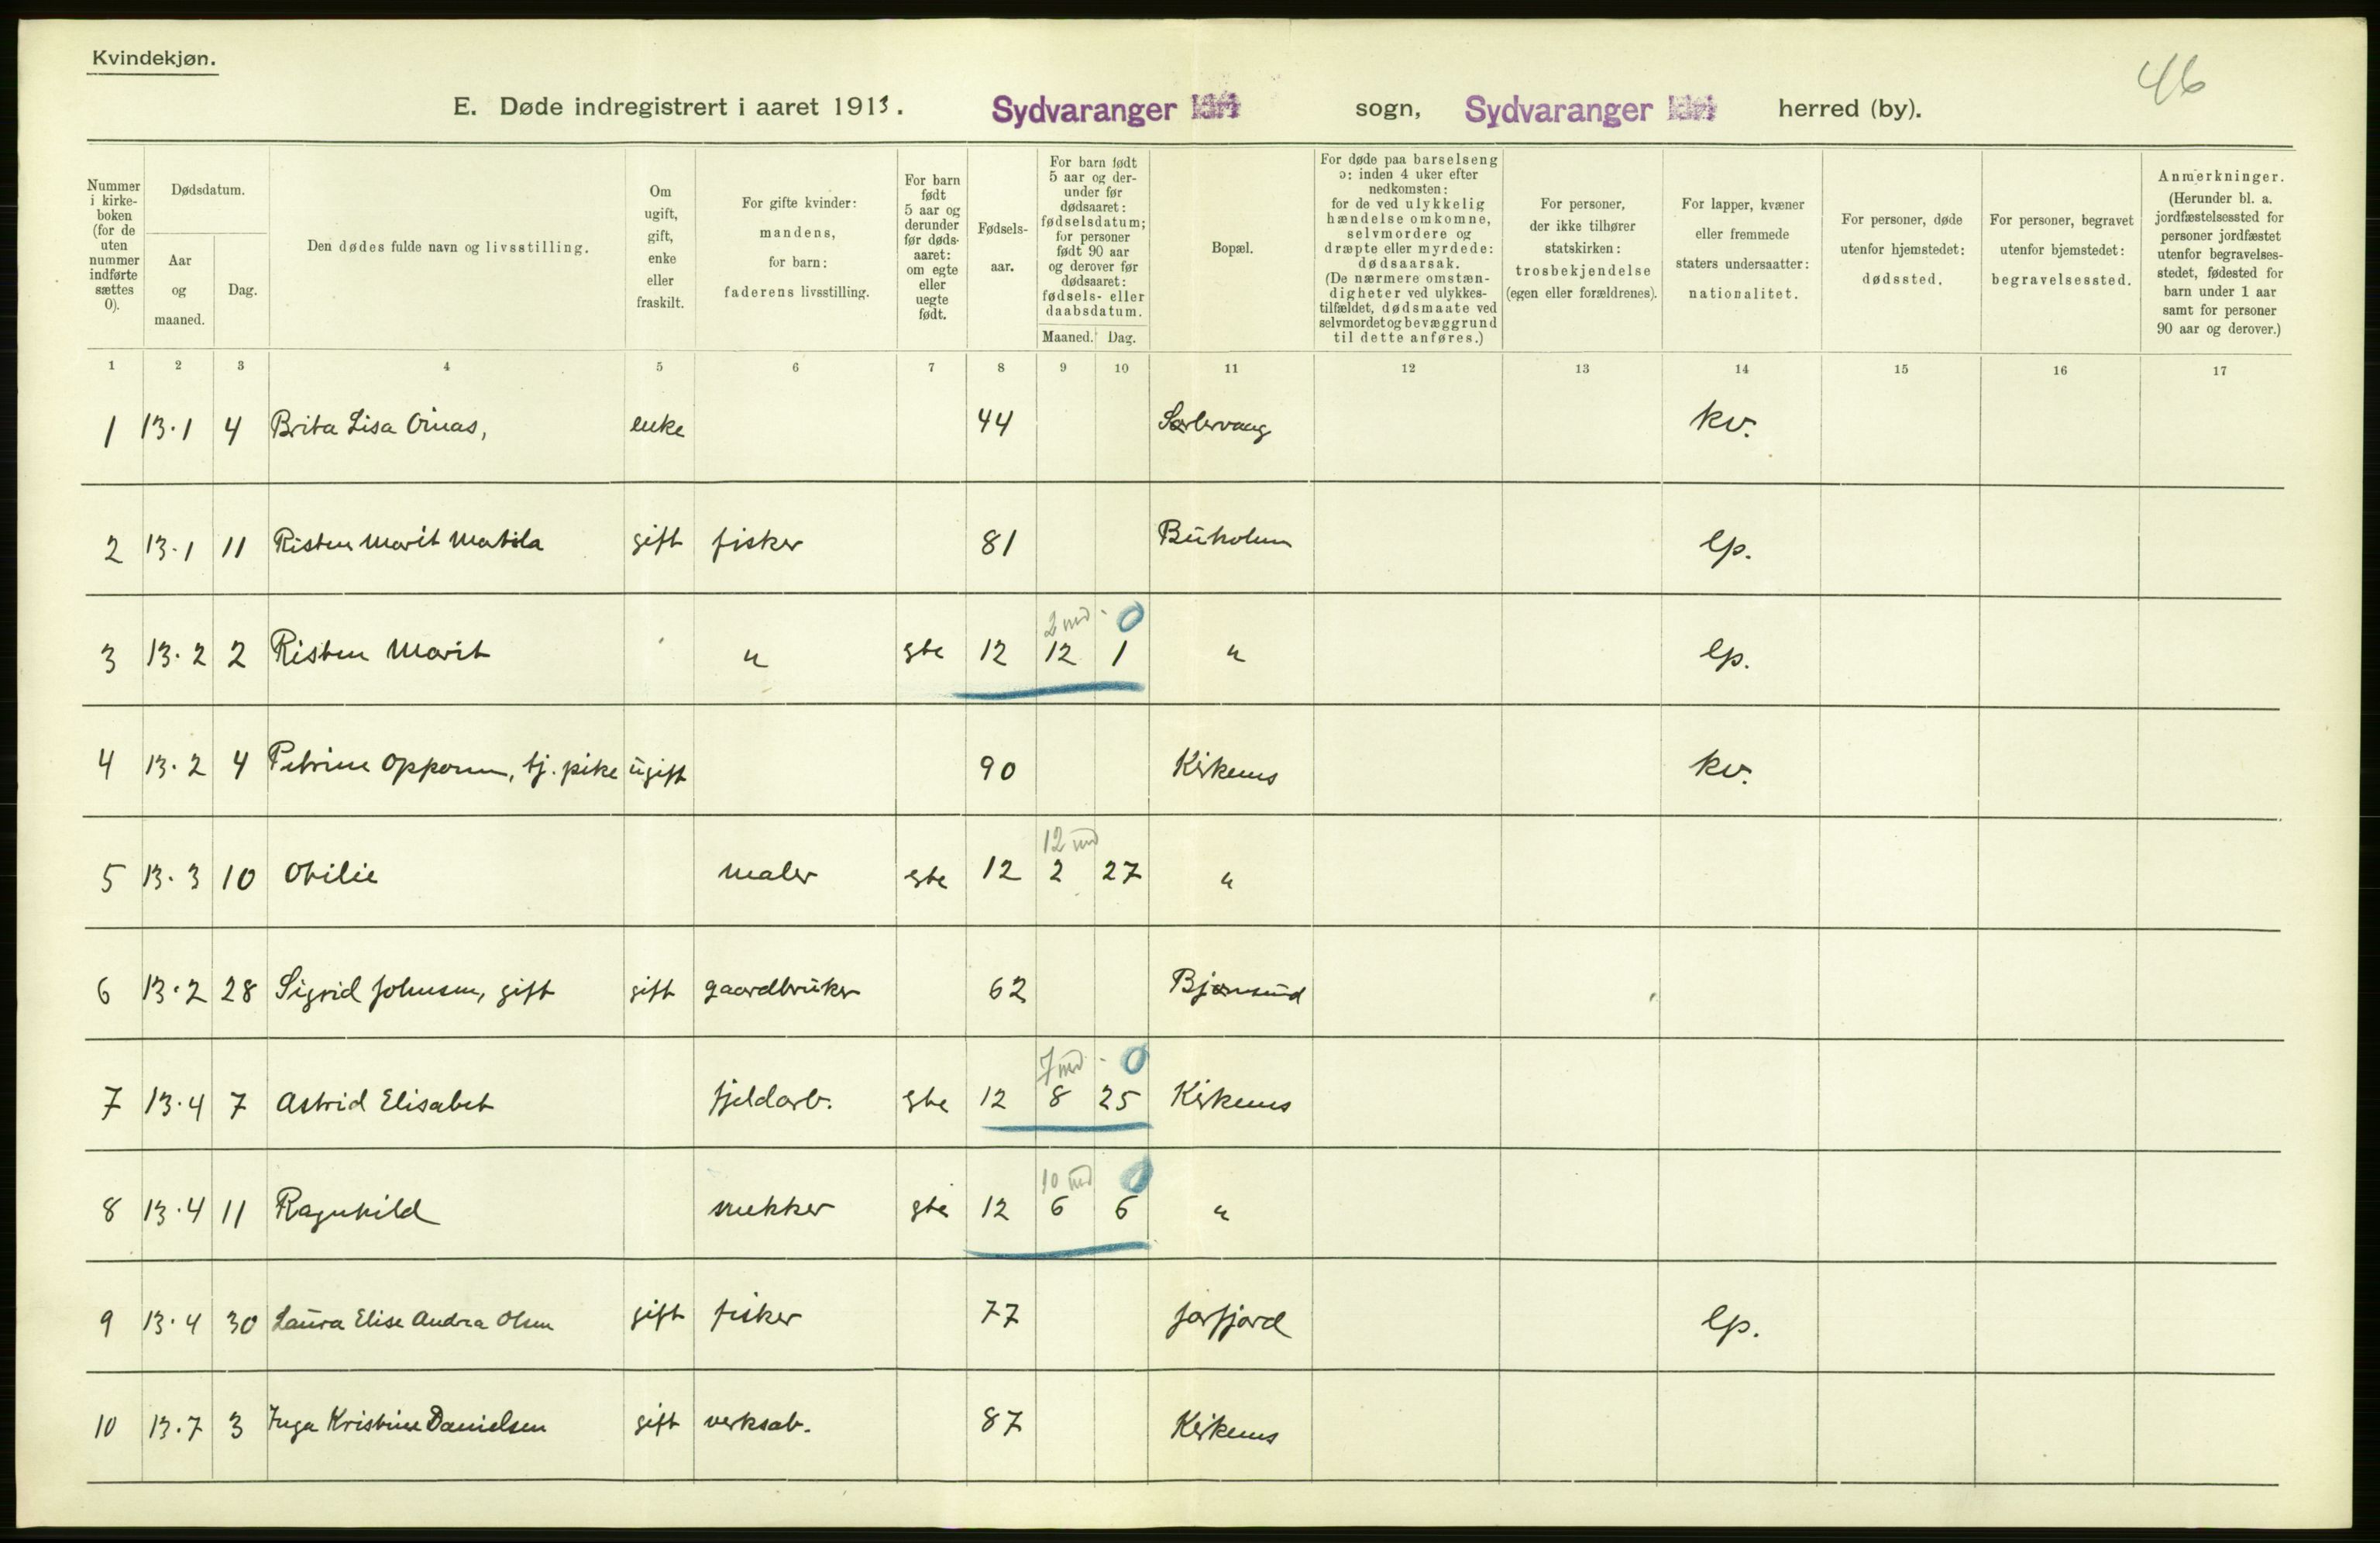 Kvindekjøn.
46
E. Døde indregistrert i aaret 1913. Sydvaranger sogn, Sydvaranger herred (by).
Nummer i kirke-boken (for de uten nummer indførte sættes 0).
Dødsdatum.
Aar og maaned.
Dag.
Den dødes fulde navn og livsstilling.
Om ugift, gift, enke eller fraskilt.
For gifte kvinder: mandens, for barn: faderens livsstilling.
For barn født 5 aar og derunder før døds-aaret: om egte eller uegte født.
Fødsels-aar.
For barn født 5 aar og der-under før dødsaaret: fødselsdatum; for personer født 90 aar og derover før dødsaaret: fødsels- eller daabsdatum.
Maaned. Dag.
Bopæl.
For døde paa barselseng ɔ: inden 4 uker efter nedkomsten: for de ved ulykkelig hændelse omkomne, selvmordere og dræpte eller myrdede: dødsaarsak. (De nærmere omstæn-digheter ved ulykkes-tilfældet, dødsmaate ved selvmordet og bevæggrund til dette anføres.)
For personer, der ikke tilhører statskirken: trosbekjendelse (egen eller forældrenes).
For lapper, kvæner eller fremmede staters undersaatter: nationalitet.
For personer, døde utenfor hjemstedet: dødssted.
For personer, begravet utenfor bjemstedet: begravelsessted.
Anmerkninger. (Herunder bl. a. jordfæstelsessted for personer jordfæstet utenfor begravelses-stedet, fødested for barn under 1 aar samt for personer 90 aar og derover.)
1 2 3 4 5 6 7 8 9 10 11 12 13 14 15 16 17
1 13.1 4 Brita Lisa Oinas, enke 44 kv.
2 13.1 11 Risten Marit Matila gift fisker 81 Buholm lp.
2 md - 0
3 13.2 2 Risten Marit " gte 12 12 1 " lp.
4 13.2 4 Petrine Opporm, tj. pike ugift 90 Kirkenes kv.
12 md
5 13.3 10 Otilie maler gte 12 2 27 "
6 13.2 28 Sigrid Johnsen, gift gift gaardbruker 62 Bjørnsund
7 md - 0
7 13.4 7 Astrid Elisabet fjeldarb. gte 12 8 25 Kirkenes
10 md 0
8 13.4 11 Ragnhild snekker gte 12 6 6 "
9 13.4 30 Laura Elise Andrea Olsen gift fisker 77 Jarfjord lp.
10 13.7 3 Inga Kristine Danielsen gift verksab. 87 Kirkenes